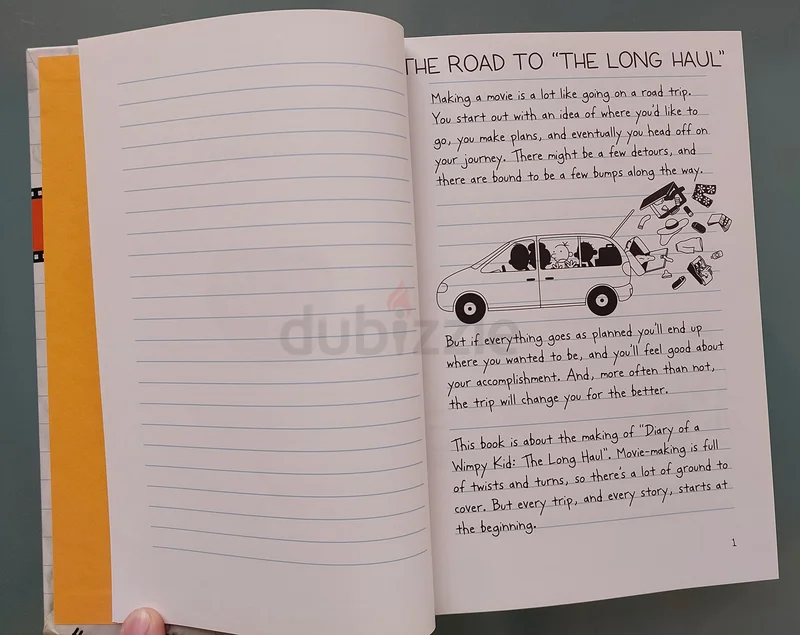 THE ROAD TO "THE LONG HAUL"
Making a movie is a lot like going on a road trip.
You start out with an idea of where you'd like to
go, you make plans, and eventually you head off on
your journey. There might be a few detours, and
there are bound to be a few bumps along the way.
dubizzle
But if everything goes as planned you'll end up
where you wanted to be, and you'll feel good about
your accomplishment. And, more often than not,
the trip will change you for the better.
This book is about the making of "Diary of a
Wimpy Kid: The Long Haul". Movie-making is full
of twists and turns, so there's a lot of ground to
cover. But every trip, and every story, starts at
the beginning.
1